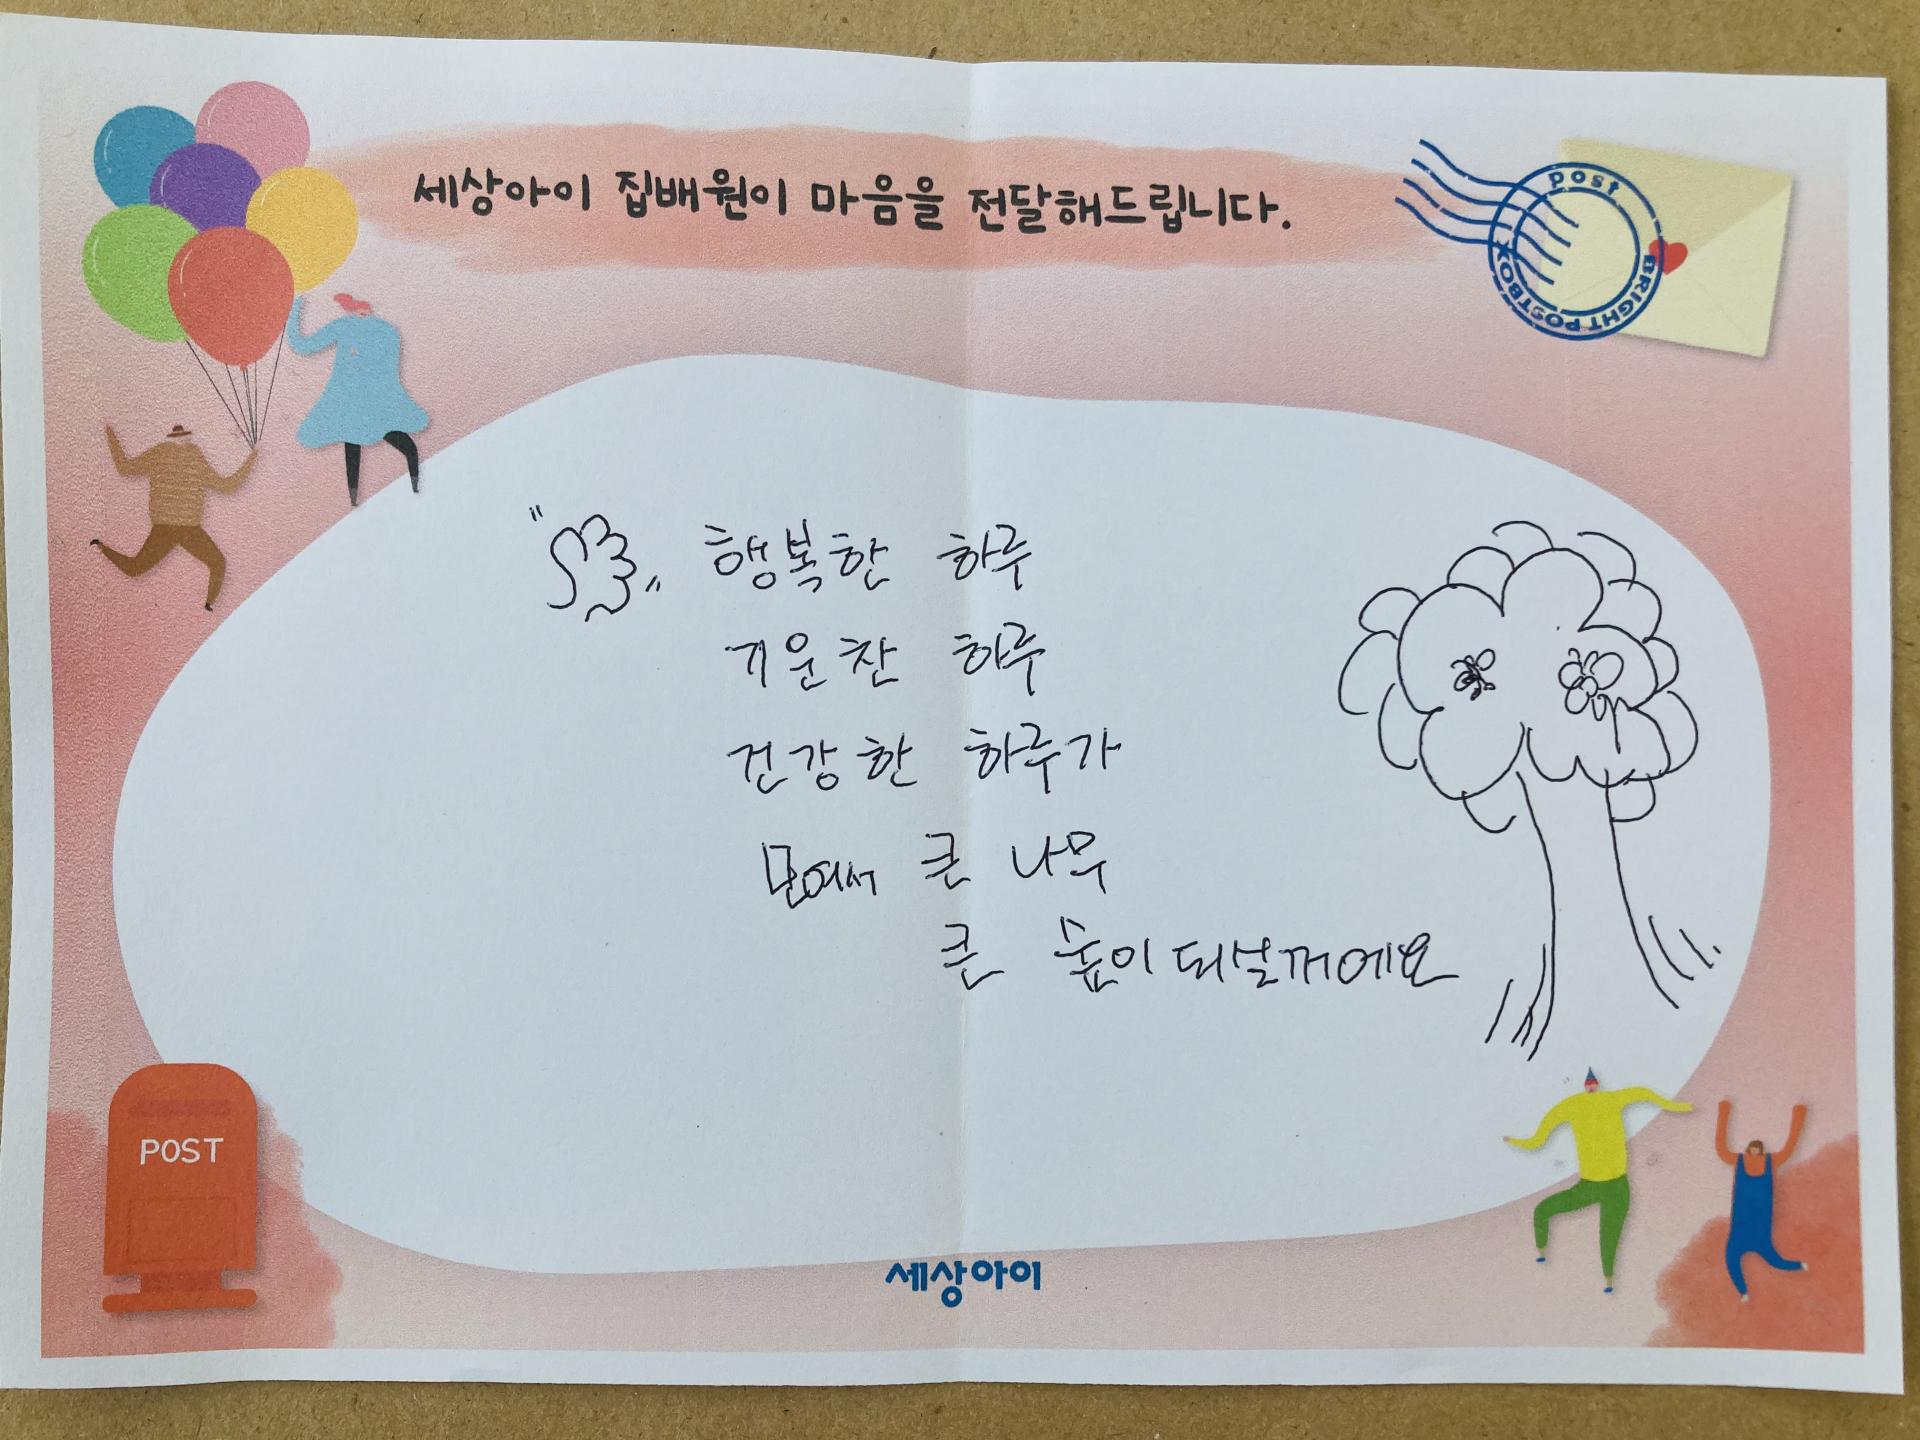 세상아이 집배원이 마음을 전달해드립니다.
post
BRIGHT POSTBOX
행복한 하루
기운찬 하루
건강한 하루가
모여서 큰 나무
큰 숲이 되실꺼에요
POST
세상아이